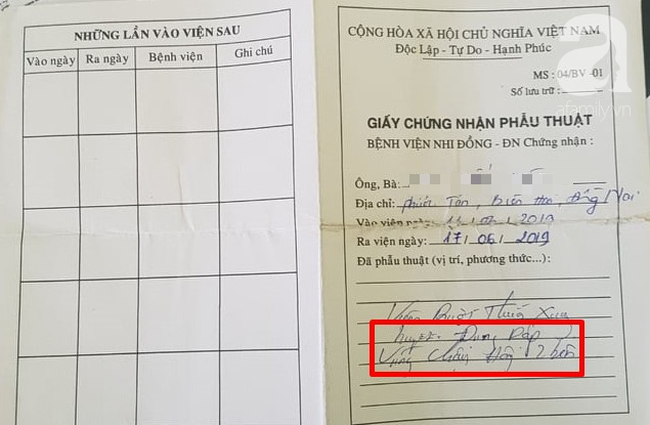 NHỮNG LẦN VÀO VIỆN SAU
Vào ngày Ra ngày Bệnh viện Ghi chú
CỘNG HÒA XÃ HỘI CHỦ NGHĨA VIỆT NAM
Độc Lập - Tự Do - Hạnh Phúc
MS : 04/BV -01
Số lưu trữ:
afamily.vn
GIẤY CHỨNG NHẬN PHẪU THUẬT
BỆNH VIỆN NHI ĐỒNG - ĐN Chứng nhận :
Ông, Bà:
Địa chỉ: Tân, Biên Hoà, Đồng Nai
Vào viện ngày: 2019
Ra viện ngày: 17/06/2019
Đã phẫu thuật (vị trí, phương thức...):
Viêm Ruột Thừa
Dung Dáp
Vùng Chậu 2 bên